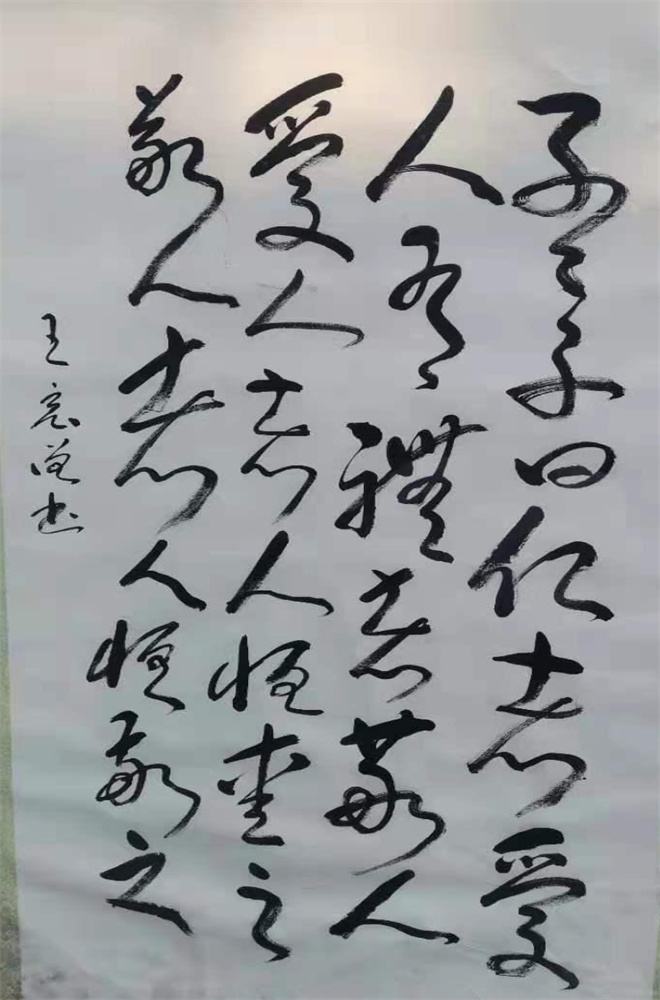 孟子曰仁者愛
人有禮者敬人
愛人者人恒愛之
敬人者人恒敬之
王宏书